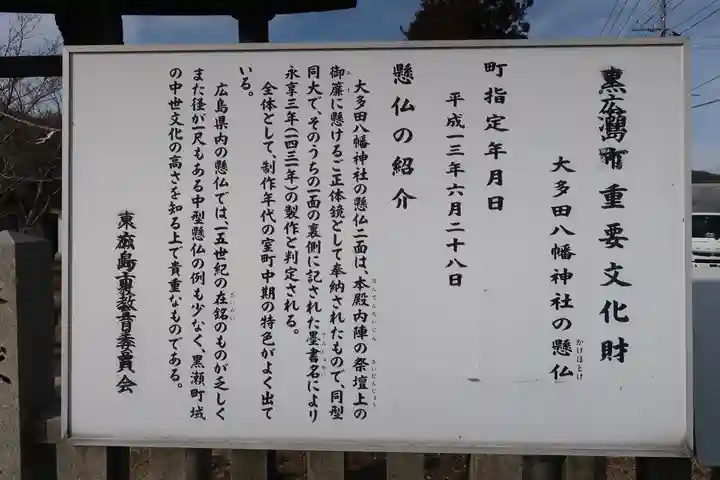 重要文化財
大多田八幡神社の懸仏
かけほとけ
町指定年月日
平成一三年六月二十八日
懸仏の紹介
大多田八幡神社の懸仏二面は、本殿内陣の祭壇上の
ほんでんないじん さいだんじょう
御簾に懸けるご正体鏡として奉納されたもので、同型
同大で、そのうちの一面の裏側に記された墨書名により
永享三年(一四三一年)の製作と判定される。
全体として、制作年代の室町中期の特色がよく出て
いる。
広島県内の懸仏では、一五世紀の在銘のものが乏しく
ざいめい
また径が一尺もある中型懸仏の例も少なく、黒瀬町域
の中世文化の高さを知る上で貴重なものである。
東広島市教育委員会